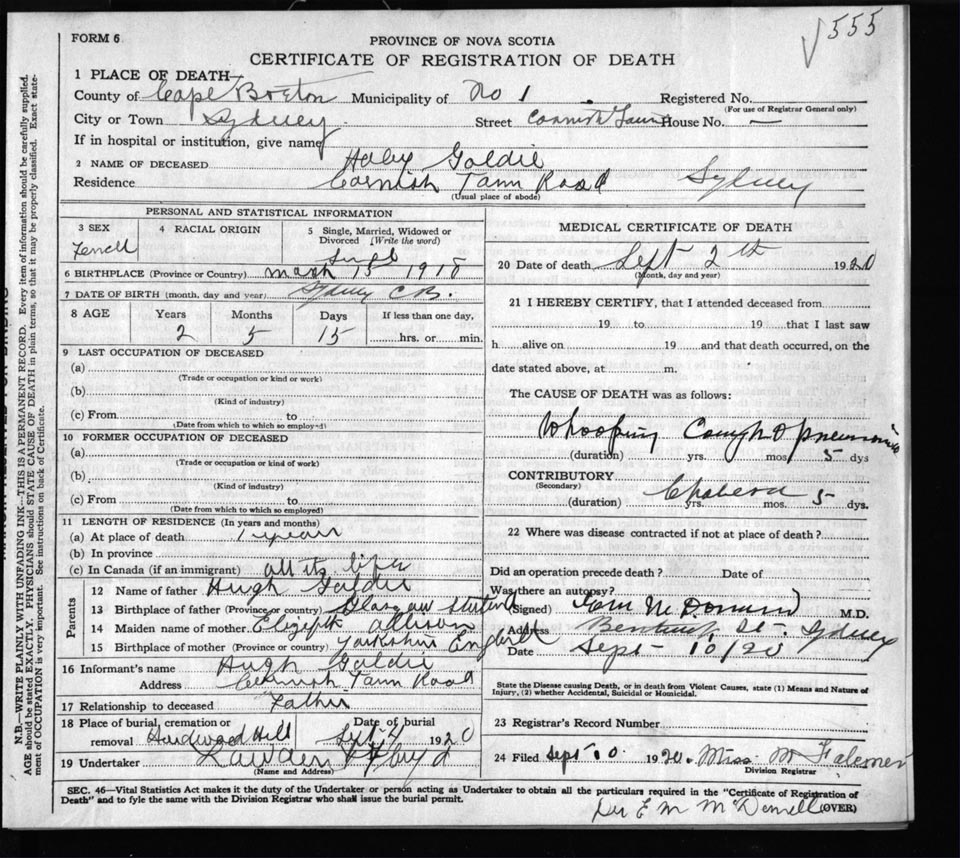 555
FORM 6
PROVINCE OF NOVA SCOTIA
CERTIFICATE OF REGISTRATION OF DEATH
1 PLACE OF DEATH—
County of Cape Breton Municipality of No 1 Registered No.
(For use of Registrar General only)
City or Town Sydney Street Cornish House No. —
If in hospital or institution, give name
2 NAME OF DECEASED Goldie
Residence Cornish Tann Road Sydney
(Usual place of abode)
PERSONAL AND STATISTICAL INFORMATION
3 SEX 4 RACIAL ORIGIN 5 Single, Married, Widowed or
Divorced (Write the word)
6 BIRTHPLACE (Province or Country) 15 1918
7 DATE OF BIRTH (month, day and year) Sydney C B.
8 AGE Years Months Days If less than one day,
2 5 15 hrs. or min.
9 LAST OCCUPATION OF DECEASED
(a)
(Trade or occupation or kind or work)
(b)
(Kind of industry)
(c) From to
(Date from which to which so employed)
10 FORMER OCCUPATION OF DECEASED
(a)
(Trade or occupation or kind of work)
(b)
(Kind of industry)
(c) From to
(Date from which to which so employed)
11 LENGTH OF RESIDENCE (In years and months)
(a) At place of death 1 year
(b) In province
(c) In Canada (if an immigrant) all its life
Parents
12 Name of father Hugh Goldie
13 Birthplace of father (Province or country) Glasgow
14 Maiden name of mother Allison
15 Birthplace of mother (Province or country) Yorkshire England
16 Informant's name Hugh Goldie
Address Cornish Tann Road
17 Relationship to deceased Father
18 Place of burial, cremation or Date of burial
removal Hardwood Hill Sept 4 1920
19 Undertaker
(Name and Address)
MEDICAL CERTIFICATE OF DEATH
20 Date of death Sept 2 th 1920
(Month, day and year)
21 I HEREBY CERTIFY, that I attended deceased from
19 to 19 that I last saw
h alive on 19 and that death occurred, on the
date stated above, at m.
The CAUSE OF DEATH was as follows:
Whooping Cough & pneumonia
(duration) yrs. mos. 5 dys
CONTRIBUTORY
(Secondary)
(duration) yrs. mos. 5 dys.
22 Where was disease contracted if not at place of death?
Did an operation precede death? Date of
Was there an autopsy?
(Signed) M.D.
Address St. Sydney
Date Sept 10/20
State the Disease causing Death, or in death from Violent Causes, state (1) Means and Nature of
Injury, (2) whether Accidental, Suicidal or Homicidal.
23 Registrar's Record Number
24 Filed Sept 10 1920. Miss M
Division Registrar
SEC. 46—Vital Statistics Act makes it the duty of the Undertaker or person acting as Undertaker to obtain all the particulars required in the "Certificate of Registration of
Death" and to fyle the same with the Division Registrar who shall issue the burial permit.
(OVER)
Dr E M
N.B.—WRITE PLAINLY WITH UNFADING INK—THIS IS A PERMANENT RECORD. Every item of information should be carefully supplied.
AGE should be stated EXACTLY. PHYSICIANS should STATE CAUSE OF DEATH in plain terms, so that it may be properly classified. Exact state-
ment of OCCUPATION is very important. See instructions on back of Certificate.